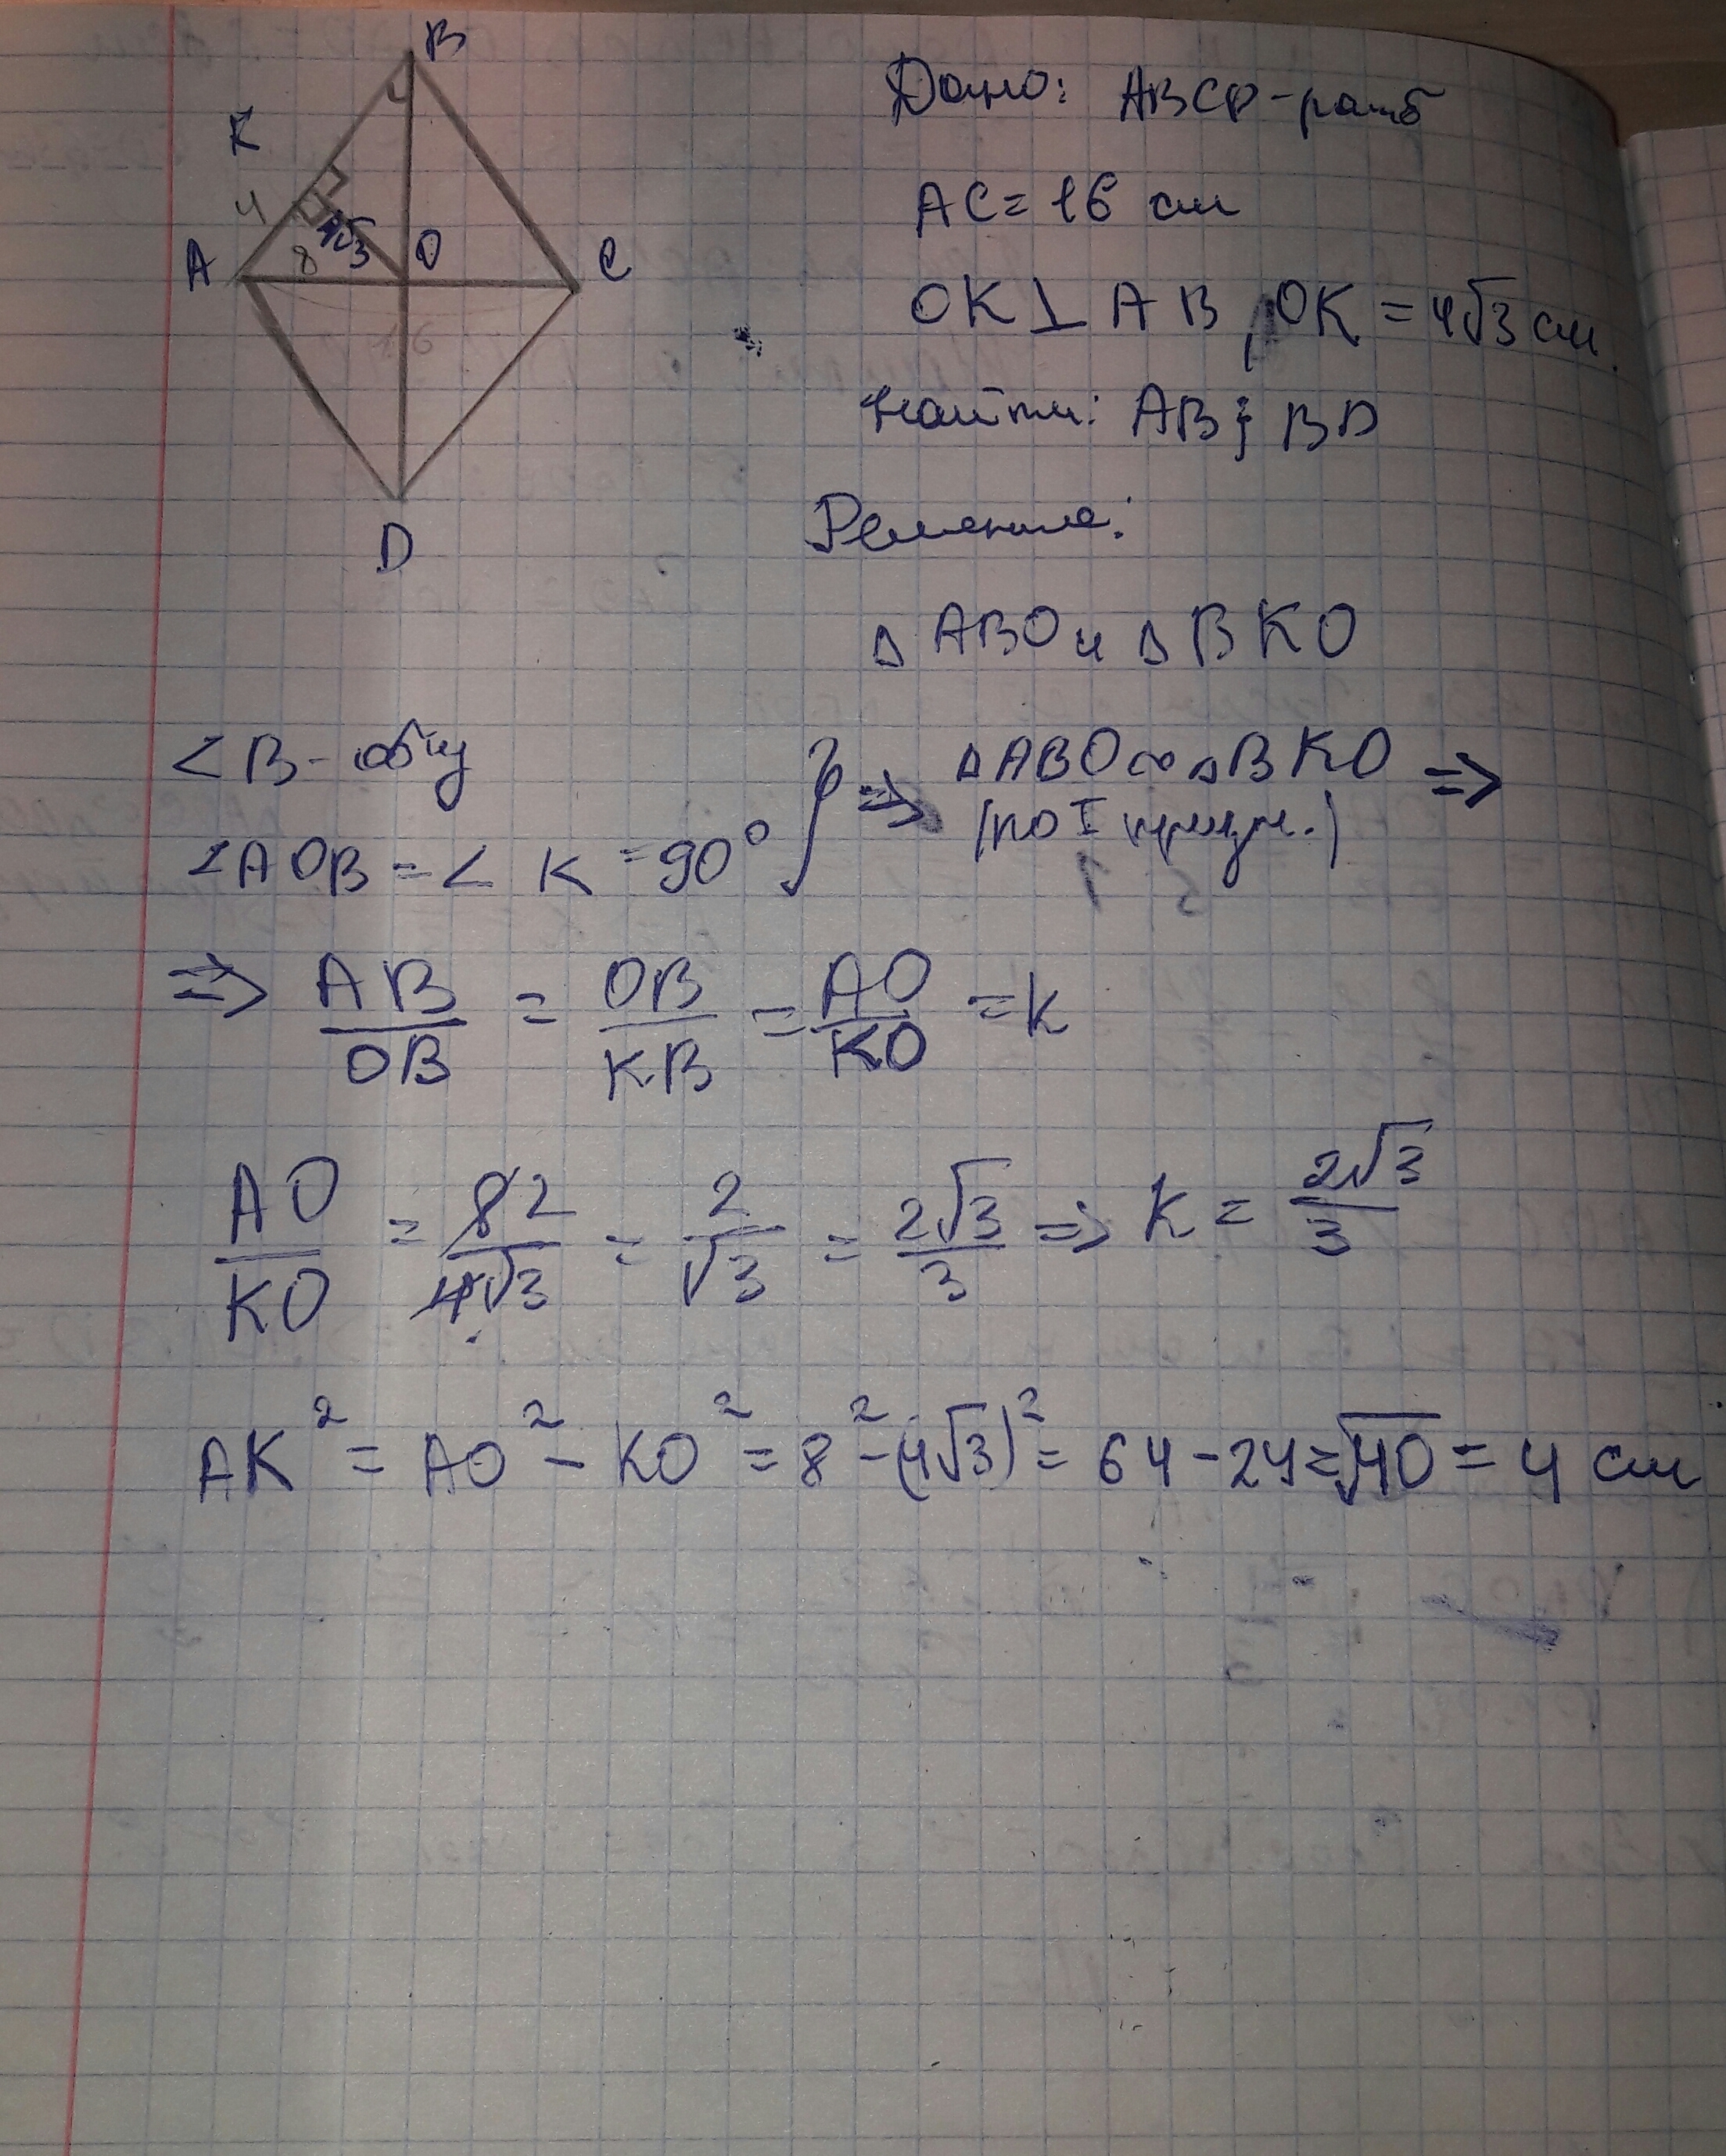 B
K
4
A
8
4√3
O
C
16
D
Дано: ABCD - ромб
AC = 16 см
OK ⊥ AB, OK = 4√3 см.
Найти: AB; BD
Решение:
Δ ABO и Δ BKO
∠B - общ
∠AOB = ∠ K = 90° } => ΔABO ∞ ΔBKO =>
(по I призн.)
=> AB/OB = OB/KB = AO/KO = k
AO/KO = 8 2/4√3 = 2/√3 = 2√3/3 => K = 2√3/3
AK² = AO² - KO² = 8² - (4√3)² = 64 - 24 = √40 = 4 см